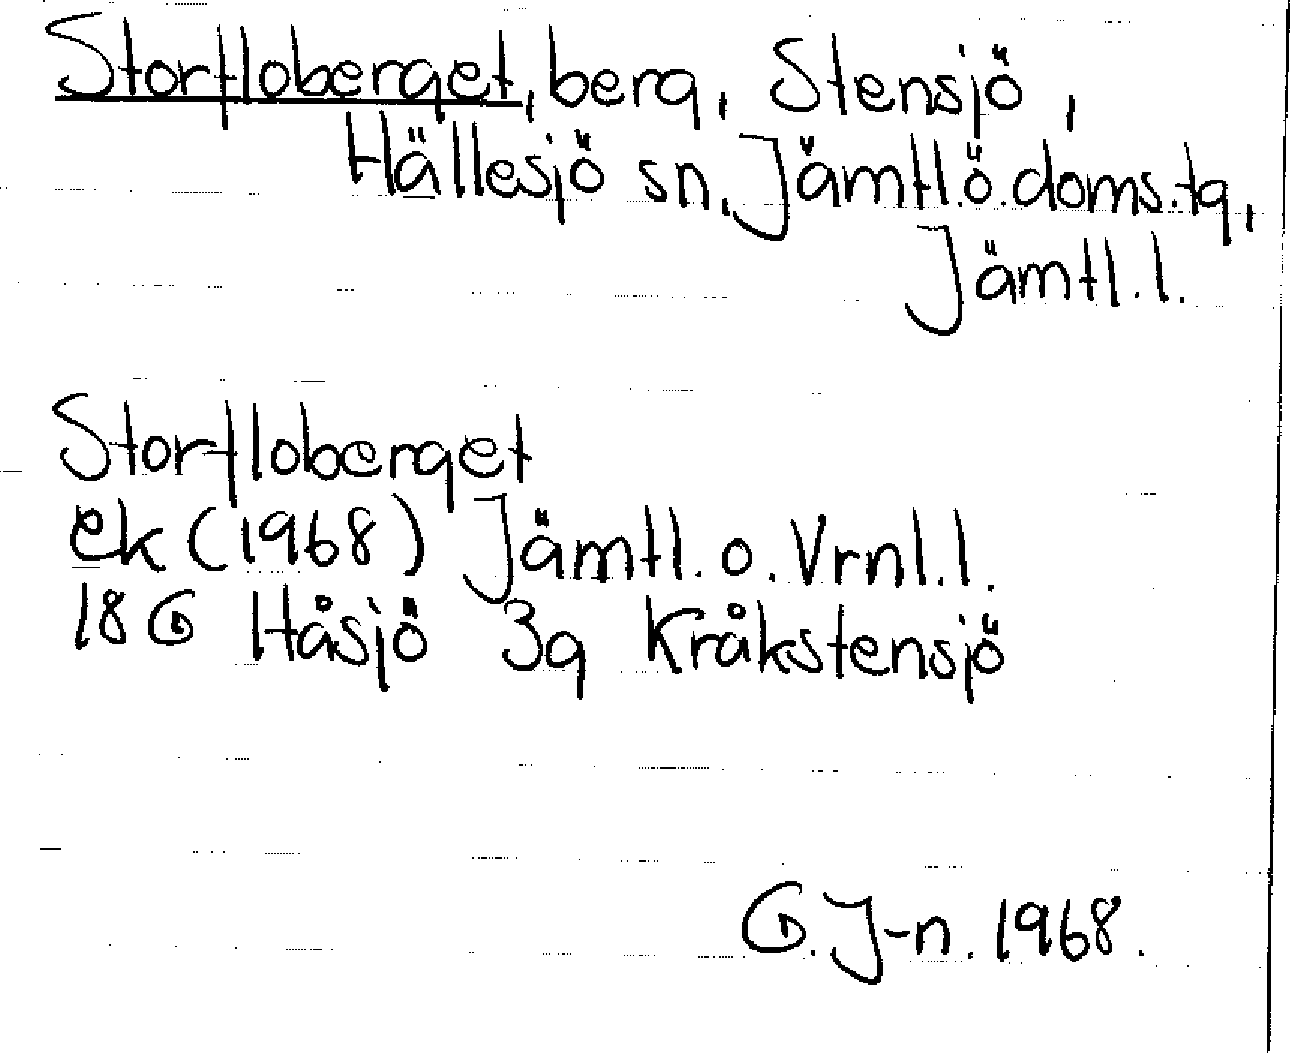 Storfloberget, berg, Stensjö,
Hällesjö sn, Jämtl.ö.doms.tg,
Jämtl.l.
Storfloberget
ek (1968) Jämtl. o. Vrnl.l.
18G Håsjö 3g Kråkstensjö
G. J-n. 1968.